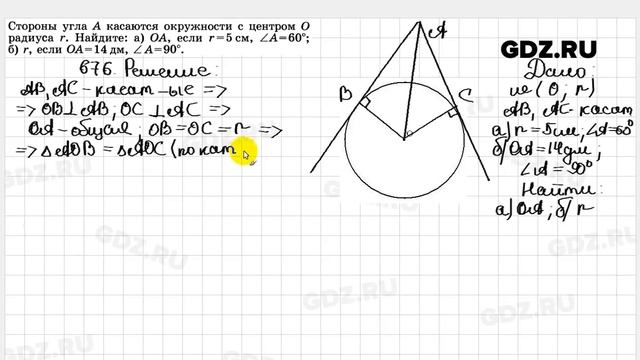 Стороны угла A касаются окружности с центром O
радиуса r. Найдите: а) OA, если r = 5 см, ∠A = 60°;
б) r, если OA = 14 дм, ∠A = 90°.
676. Решение:
AB, AC - касат-ые =>
=> OB ⊥ AB; OC ⊥ AC =>
OA - общая, OB = OC = r =>
=> △AOB = △AOC (по кат
A
B
C
O
GDZ.RU
Дано:
(O; r)
AB, AC - касат
а) r = 5 см, ∠A = 60°
б) OA = 14 дм;
∠A = 90°
Найти:
а) OA; б) r
GDZ.RU
GDZ.RU
GDZ.RU
GDZ.RU